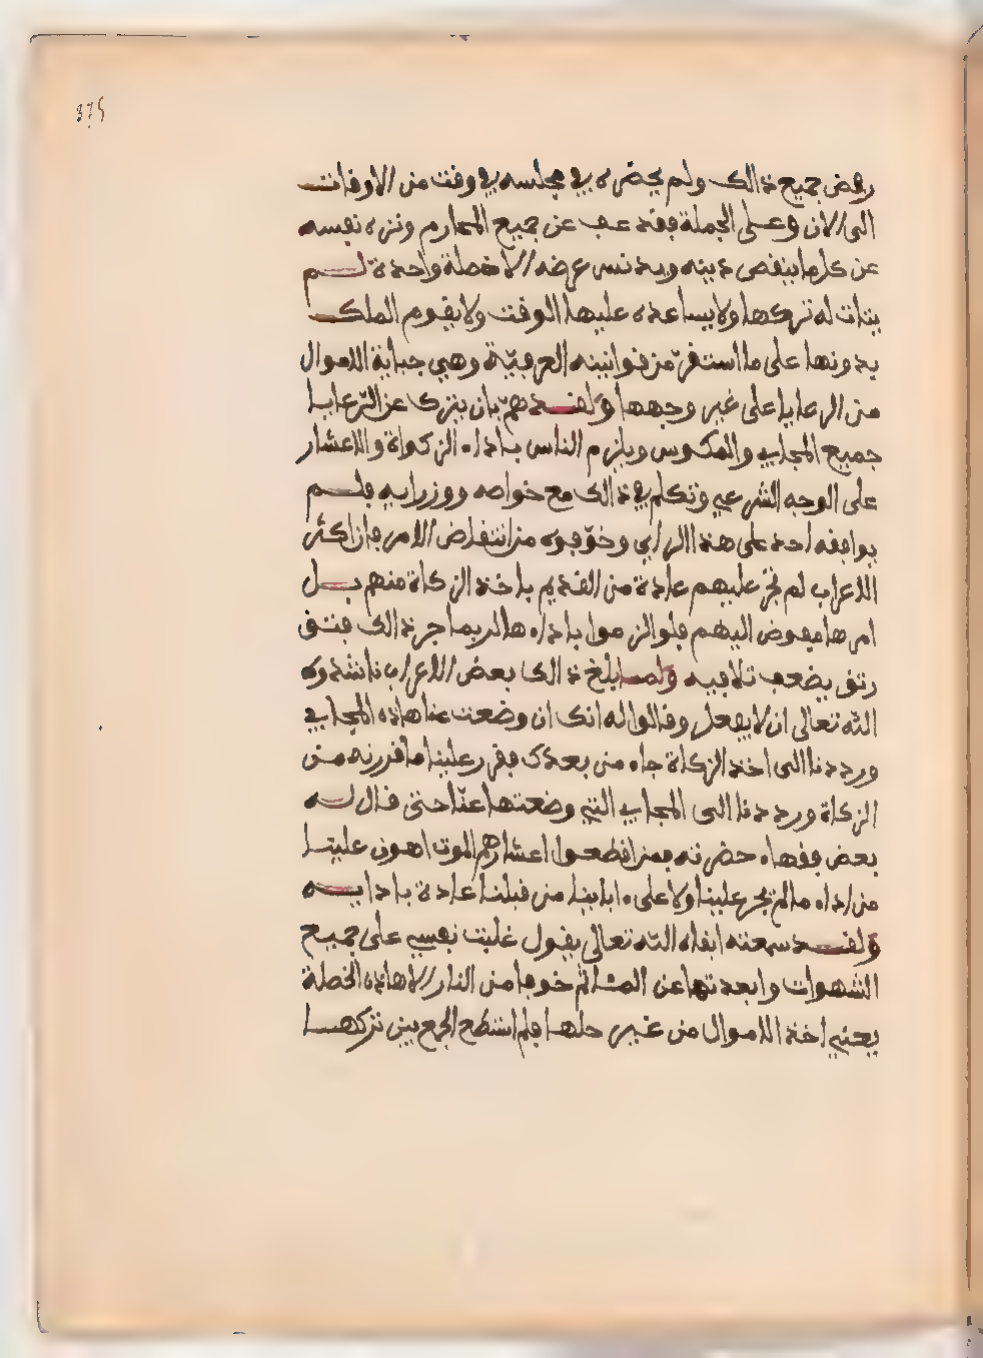 375
رفض جميع ذالك ولم يحضره في مجلسه في وقت من الاوقات
الى الان وعلى الجملة فقد عف عن جميع المحارم ونزه نفسه
عن كل ما ينقص دينه ويدنس عرضه الا خصلة واحدة لم
يتات له تركها ولا يساعده عليها الوقت ولا يقوم الملك
بدونها على ما استقر من قوانينه العرفية وهي جباية الاموال
من الرعايا على غير وجهها ولقد هم بان يترك عن الرعايا
جميع المجابي والمكوس ويلزم الناس باداء الزكواة والاعشار
على الوجه الشرعي وتكلم في ذالك مع خواصه ووزرايه فلم
يوافقه احد على هذا الراي وخوفوه من انتقاض الامر فان اكثر
الاعراب لم تجر عليهم عادة من القديم باخذ الزكاة منهم بل
امرها مفوض اليهم فلو الزموا باداءها لربما جر ذالك فتق
رتق يضعف تلافيه ولما بلغ ذالك بعض الاعراب ناشدوه
الله تعالى ان لا يفعل وقالوا له انك ان وضعت عنا هاذه المجابي
ورددنا الى اخذ الزكاة جاء من بعدك فقرر علينا ما قررته من
الزكاة ورددنا الى المجابي التي وضعتها عنا حتى قال له
بعض فقهاء حضرته بمن اقطعوا اعشارهم الموت اهون علينا
من اداء ما لم يجر علينا ولا على ءاباينا من قبلنا عادة بادايه
ولقد سمعته ابقاه الله تعالى يقول غلبت نفسي على جميع
الشهوات وابعدتها عن المئاثم خوفا من النار الا هاذه الخصلة
يعني اخذ الاموال من غير حلها فلم استطع الجمع بين تركها